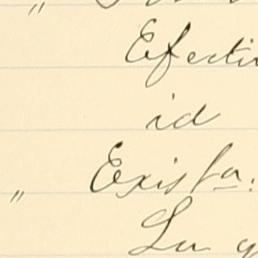 "
Efecti
id
" Exista.
Su q